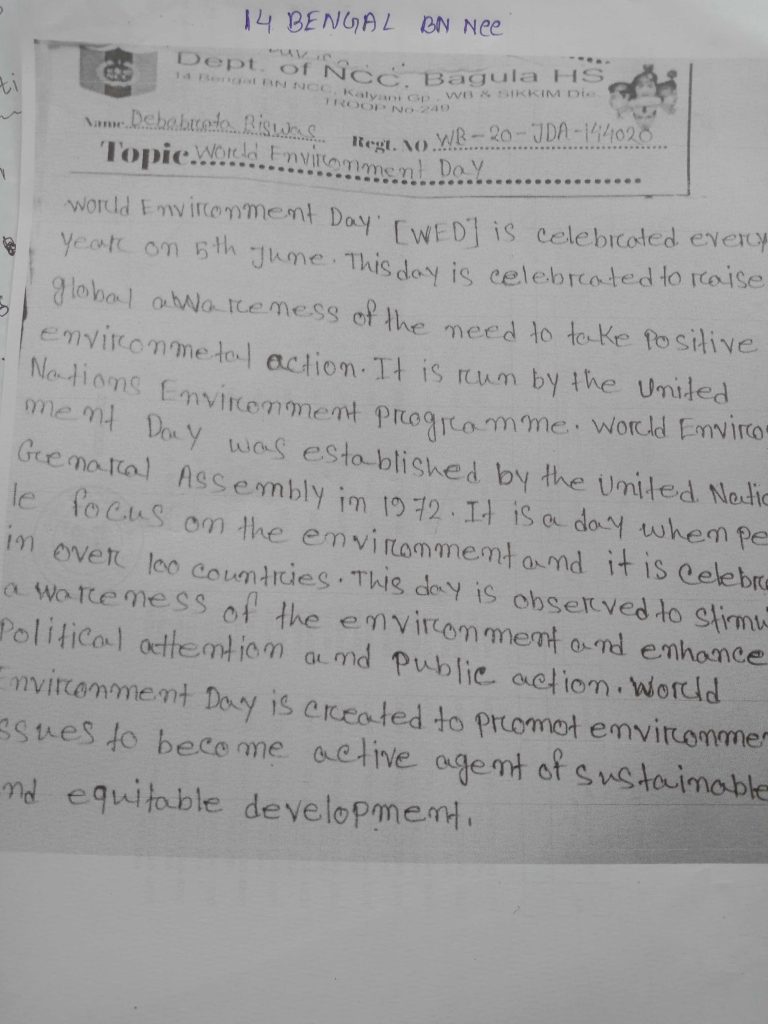 14 BENGAL BN NCC
Dept. of NCC, Bagula HS
14 Bengal BN NCC, Kalyani Gp, WB & SIKKIM Dte.
TROOP No-249
Name Debabrata Biswas Regt. NO WB-20-JDA-144020
Topic World Environment Day
World Environment Day [WED] is celebrated every
year on 5th June. This day is celebrated to raise
global awareness of the need to take positive
environmetal action. It is run by the United
Nations Environment programme. World Enviro
ment Day was established by the United Natio
Genaral Assembly in 1972. It is a day when pe
le focus on the environment and it is celebra
in over 100 countries. This day is observed to stimu
awareness of the environment and enhance
Political attention and public action. World
Environment Day is created to promot environme
ssues to become active agent of sustainable
nd equitable development.